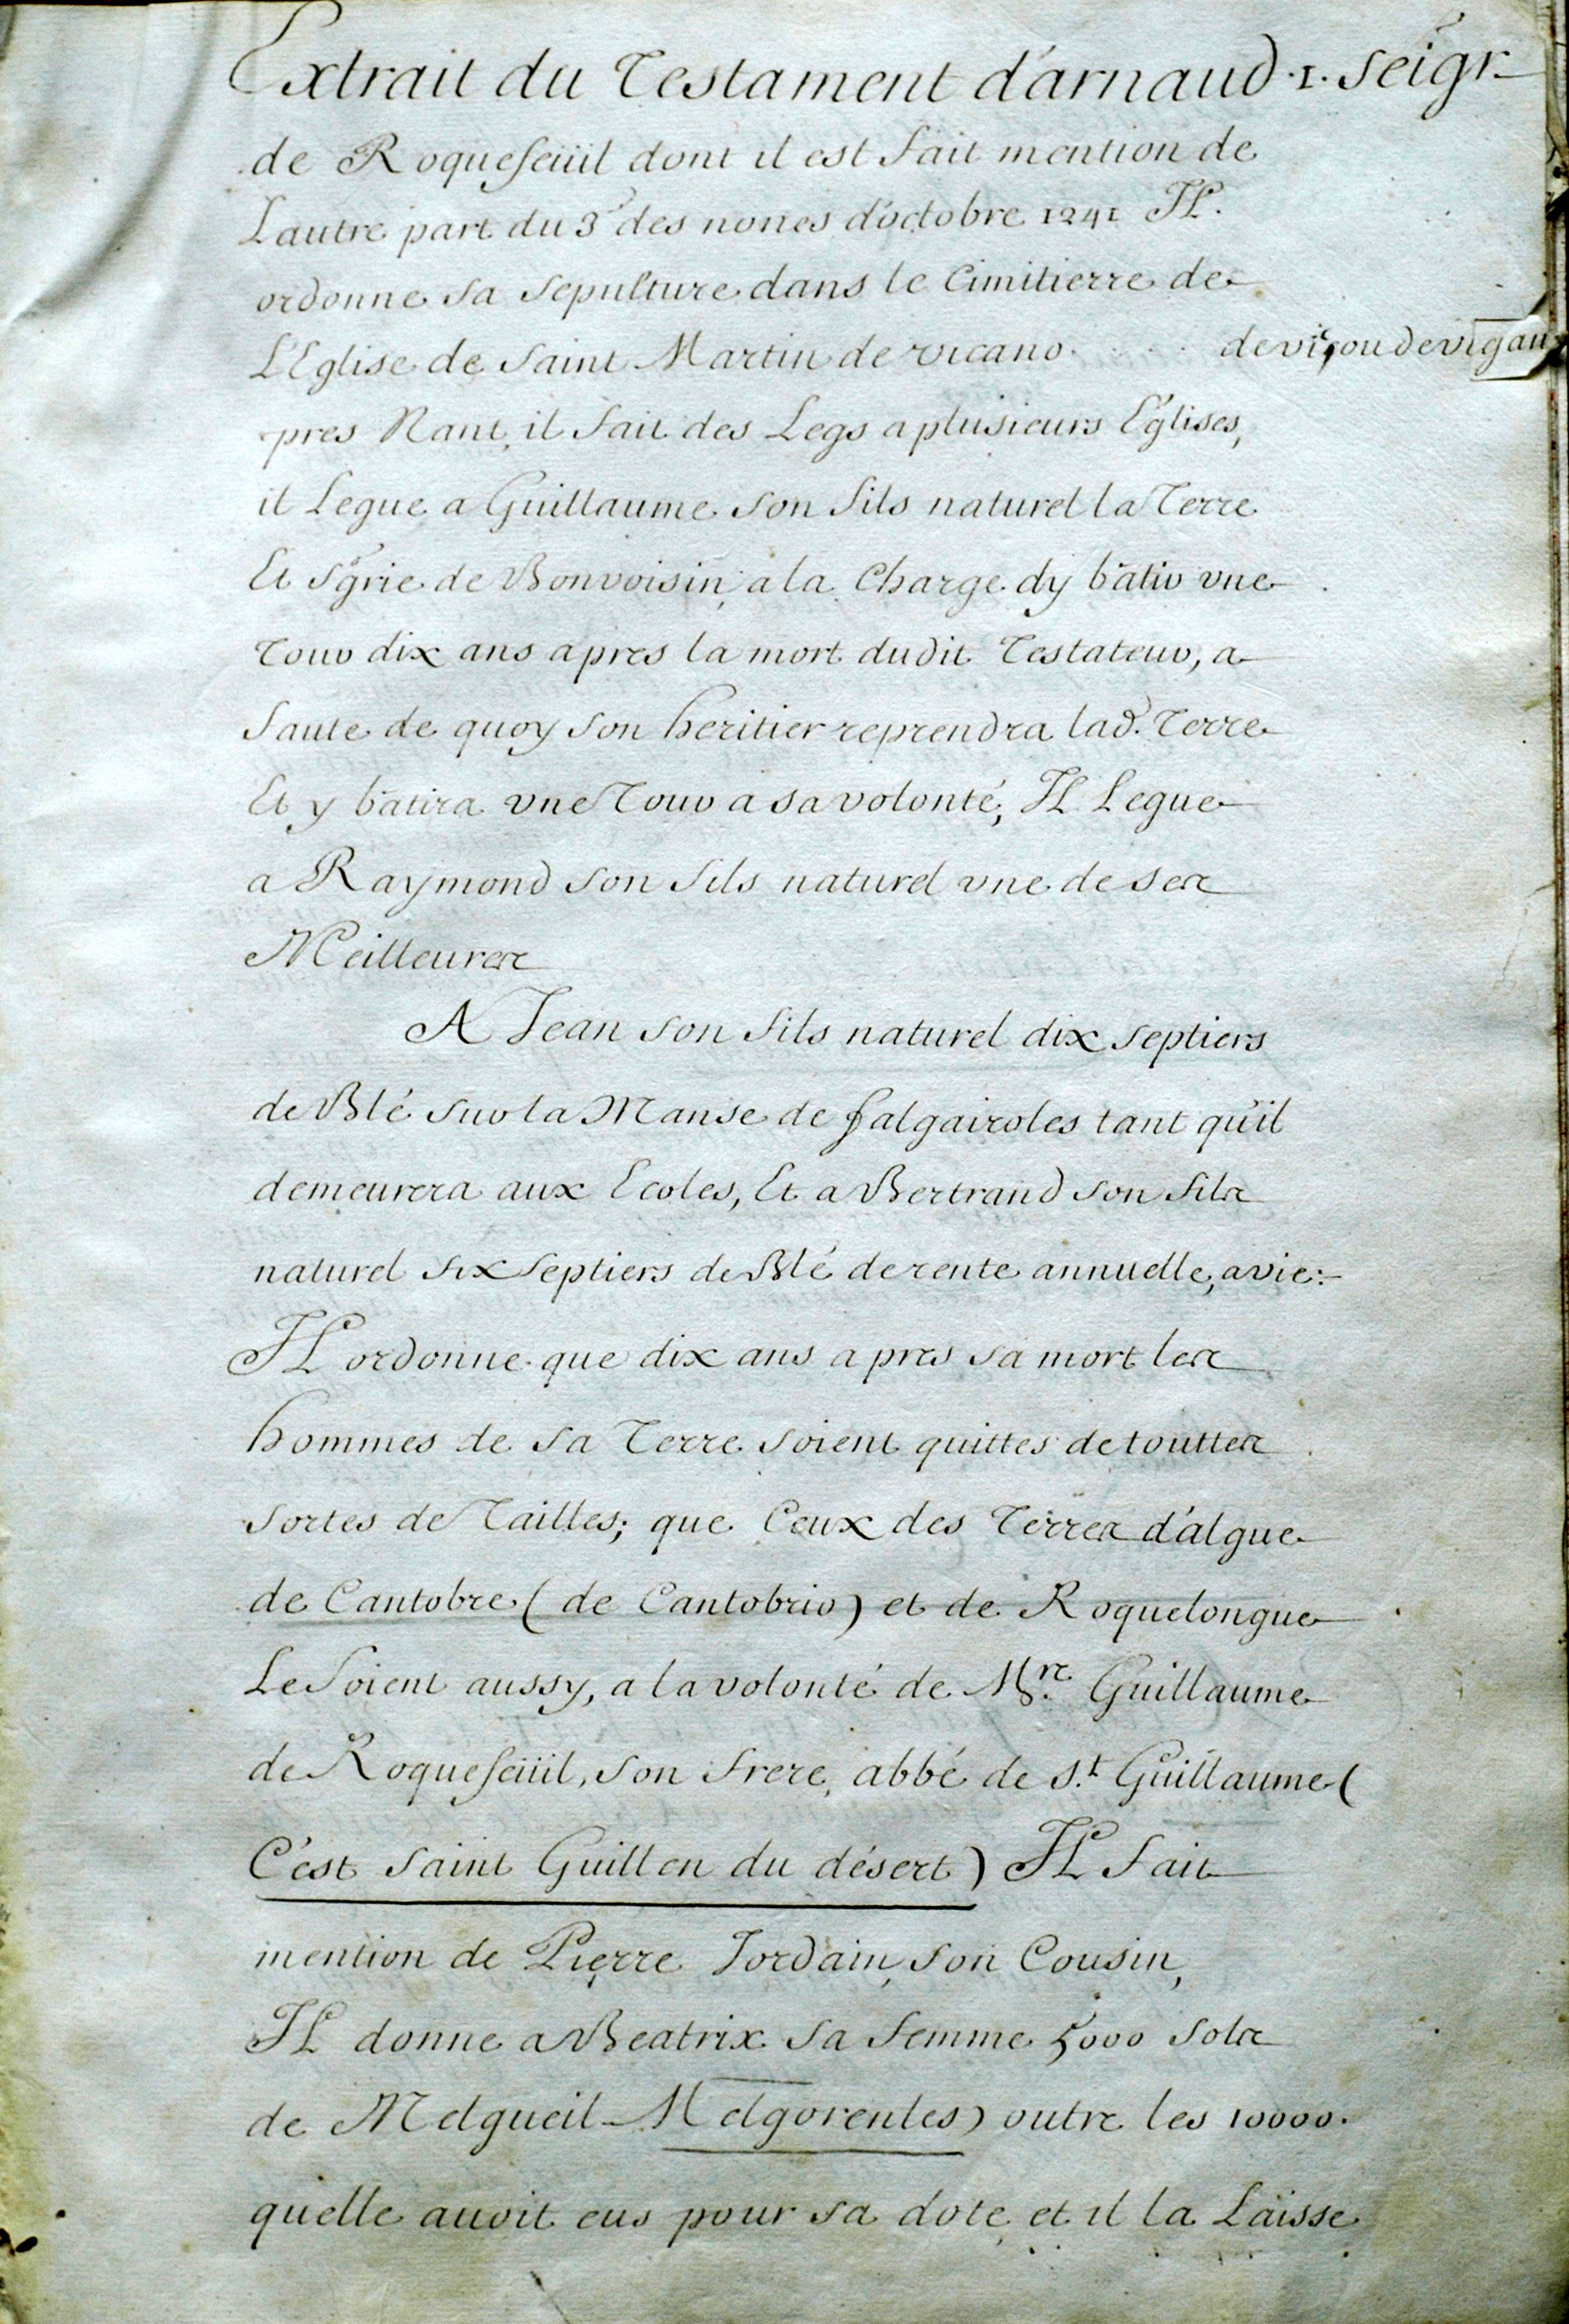 Extrait du Testament d'arnaud .1. seigr
de Roquefeüil dont il est fait mention de
Lautre part du 3e des nones d'octobre 1241 Il
ordonne sa sepulture dans le Cimitierre de
L'Eglise de saint Martin de vicano . . . . de viç ou de vigan
pres Nant, il fait des Legs a plusieurs Eglises,
il Legue a Guillaume son fils naturel la Terre
Et sgrie de Bonvoisin, a la Charge dy bâtir vne
Tour dix ans apres la mort dudit Testateur, a
faute de quoy son heritier reprendra lad. Terre
Et y bâtira vne Tour a sa volonté, Il Legue
a Raymond son fils naturel vne de ses
Meilleures
A Jean son fils naturel dix septiers
de Blé sur la Manse de falgairoles tant qu'il
demeurera aux Ecoles, Et a Bertrand son fils
naturel six septiers de Blé de rente annuelle, a vie:
Il ordonne que dix ans apres sa mort les
hommes de sa Terre soient quittes de touttes
sortes de Tailles; que Ceux des Terres d'algue
de Cantobre (de Cantobrio) et de Roquelongue
Le soient aussy, a la volonté de Mre. Guillaume
de Roquefeüil, son frere, abbé de s.t Guillaume (
C'est saint Guillen du désert) Il fait
mention de Pierre Jordain, son Cousin,
Il donne a Beatrix sa femme 5000 sols
de Melgueil Melgorenles) outre les 10000.
quelle auoit eus pour sa dote et il la Laisse